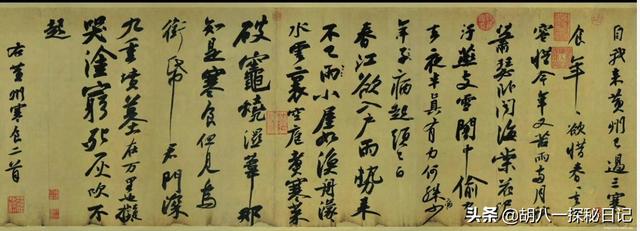 自我來黃州已過三寒
食年〻欲惜春〻去不
容惜今年又苦雨兩月秋
蕭瑟卧聞海棠花泥
汙燕支雪闇中偷負
去夜半真有力何殊少
年子病起頭已白
春江欲入戶雨勢來
不已雨小屋如漁舟濛〻
水雲裏空庖煮寒菜
破竈燒濕葦那
知是寒食但見烏
銜帋君門深
九重墳墓在万里也擬
哭塗窮死灰吹不
起
右黃州寒食二首
头条 @胡八一探秘日记